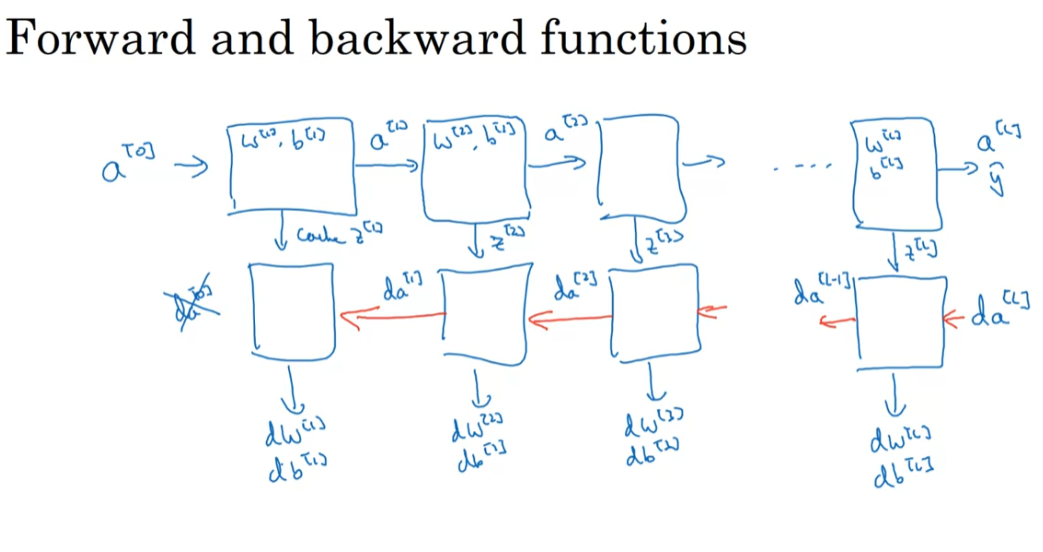 Forward and backward functions
a^[0] → w^[1], b^[1] a^[1] → w^[2], b^[2] a^[2] → → ···· w^[L] → a^[L]
b^[L] ŷ
cache z^[1] z^[2] z^[3] z^[L]
da^[0] da^[1] da^[2] da^[L-1] da^[L]
dw^[1] dw^[2] dw^[3] dw^[L]
db^[1] db^[2] db^[3] db^[L]